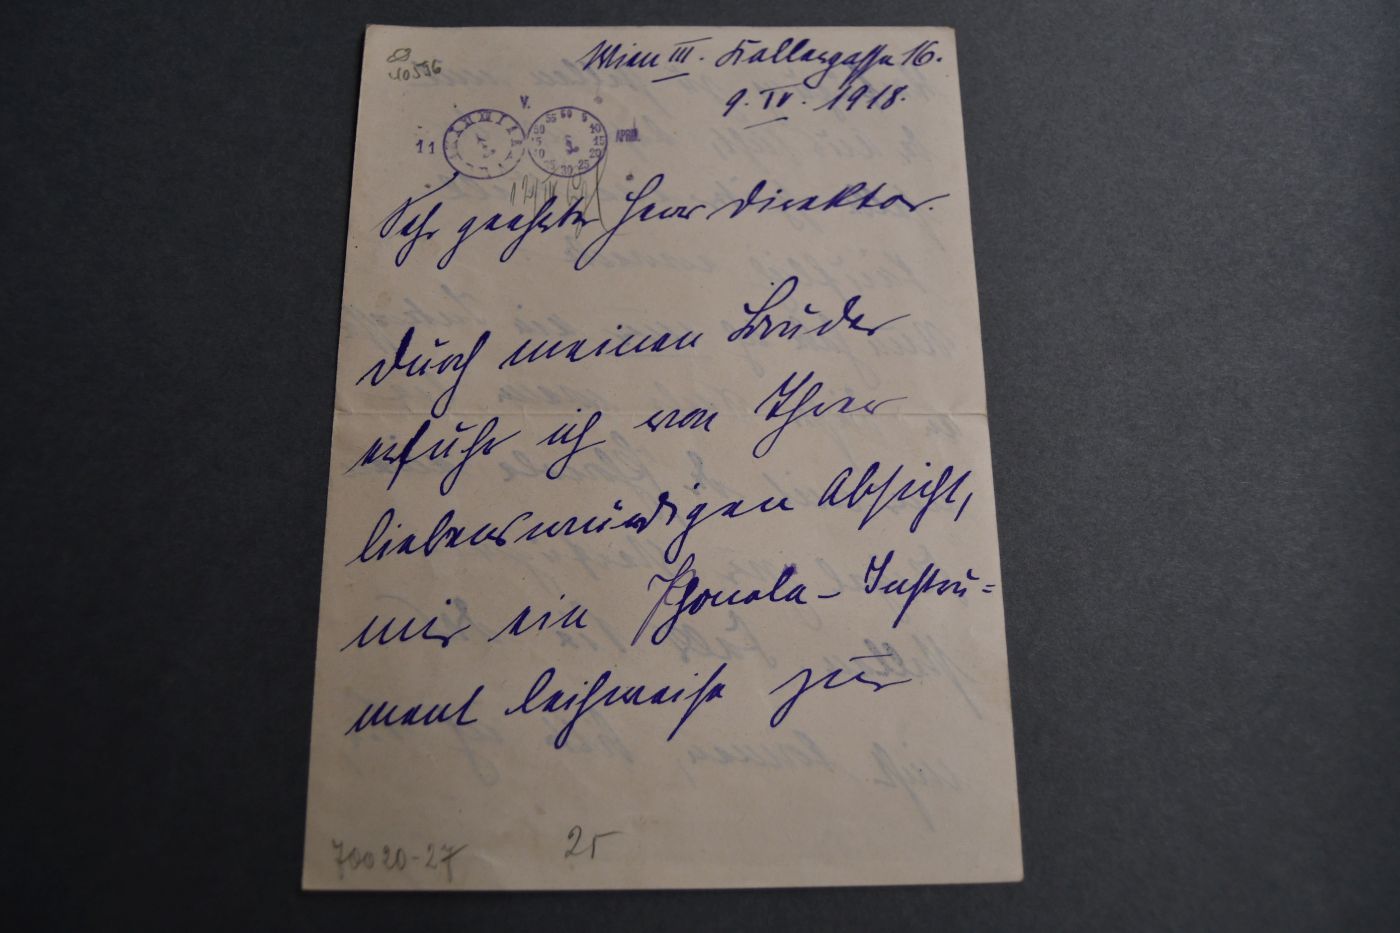 10596
Wien III. Kollergasse 16.
9. IV. 1918.
V.
11
APRIL
55 60 5
50 10
15
20
25 30 25
Sehr geehrter Herr Direktor.
Durch meinen Bruder
erfuhr ich von Ihrer
liebenswürdigen Absicht,
mir ein Phonola-Instru=
ment leihweise zur
70020-27
25